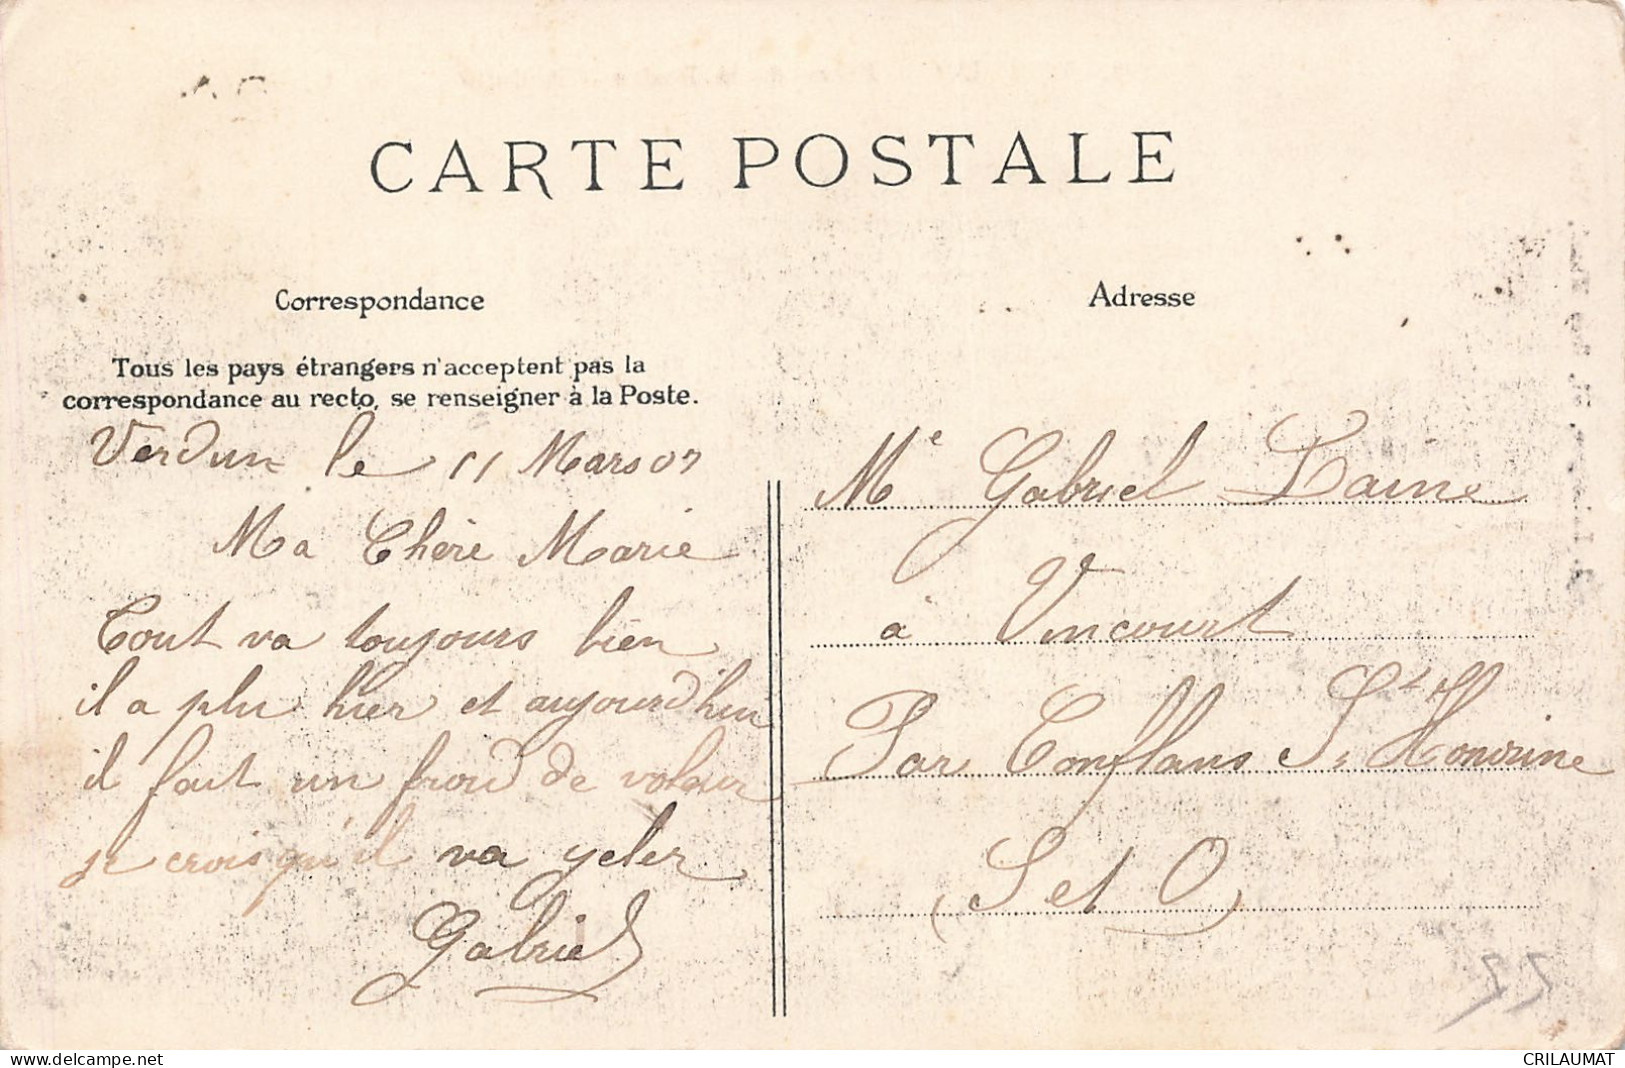 CARTE POSTALE
Correspondance
Tous les pays étrangers n'acceptent pas la
correspondance au recto, se renseigner à la Poste.
Verdun le 11 Mars 07
Ma Chère Marie
Tout va toujours bien
il a plu hier et aujourd'hui
il fait un froid de voleur
je crois qu'il va geler
Gabriel
Adresse
Me Gabriel Laine
à Vincourt
Par Conflans Ste Honorine
(S et O)
55
CRILAUMAT